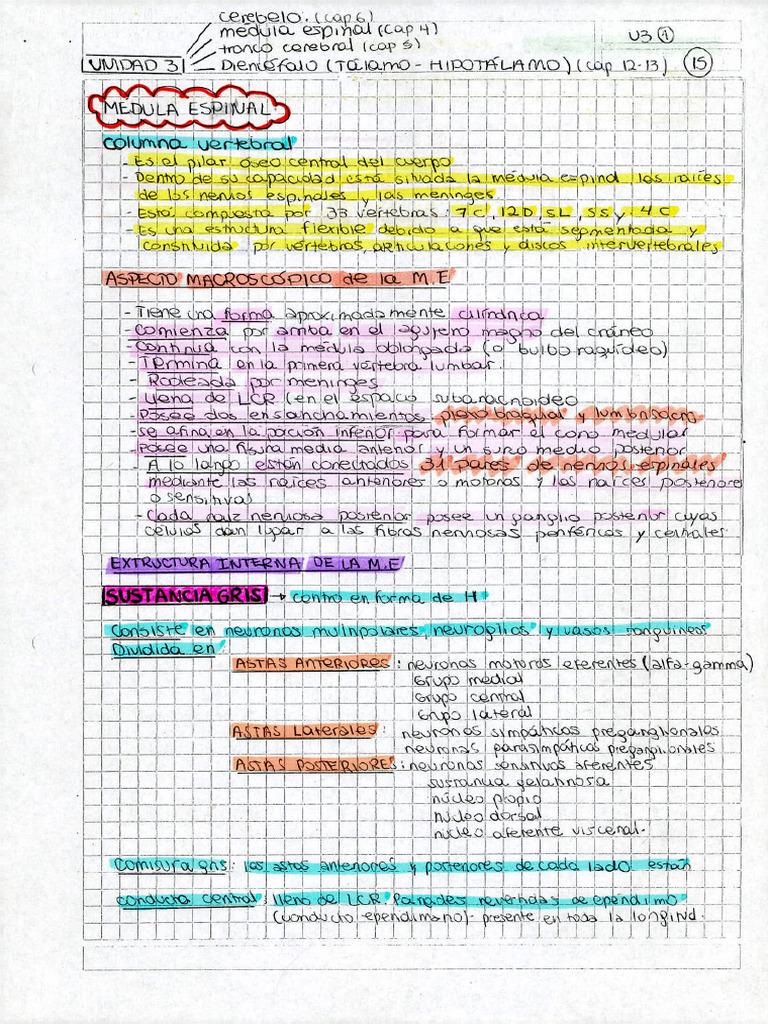 cerebelo. (cap 6)
medula espinal (cap 4)
tronco cerebral (cap 5)
UNIDAD 3
Diencéfalo (Tálamo - HIPOTÁLAMO) (cap 12-13)
U3 ①
15
MEDULA ESPINAL
columna vertebral
- Es el pilar óseo central del cuerpo
- Dentro de su capacidad está situada la médula espinal, las raíces
de los nervios espinales y las meninges.
- Está compuesta por 33 vertebras: 7C, 12D, 5L, 5S y 4C
- Es una estructura flexible debido a que está segmentada y
constituida por vértebras, articulaciones y discos intervertebrales
ASPECTO MACROSCÓPICO de la M.E
- Tiene una forma aproximadamente cilíndrica
- Comienza por arriba en el agujero magno del cráneo
- Continua con la médula oblongada (o bulbo raquídeo)
- Termina en la primera vértebra lumbar.
- Rodeada por meninges
- Llena de LCR (en el espacio subaracnoideo
- Posee dos ensanchamientos: plexo braquial y lumbosacro
- se afina en la porción inferior para formar el cono medular
- Posee una fisura media anterior y un surco medio posterior
- A lo largo están conectados 31 pares de nervios espinales
mediante las raíces anteriores o motoras y las raíces posteriores
o sensitivas
- Cada raíz nerviosa posterior posee un ganglio posterior cuyas
células dan lugar a las fibras nerviosas periféricas y centrales.
EXTRUCTURA INTERNA DE LA M.E
SUSTANCIA GRIS → centro en forma de H
Consiste en neuronas multipolares, neuroglias y vasos sanguíneos
Dividida en
ASTAS ANTERIORES: neuronas motoras eferentes (alfa-gamma)
Grupo medial
Grupo central
Grupo lateral
ASTAS Laterales: neuronas simpáticas preganglionales
neuronas parasimpáticas preganglionales
ASTAS POSTERIORES: neuronas sensitivas aferentes
sustancia gelatinosa
núcleo propio
núcleo dorsal
núcleo aferente visceral.
Comisura gris: las astas anteriores y posteriores de cada lado están
conducto central: lleno de LCR. Paredes revertidas de epéndimo
(conducto ependimario)- presente en toda la longind.